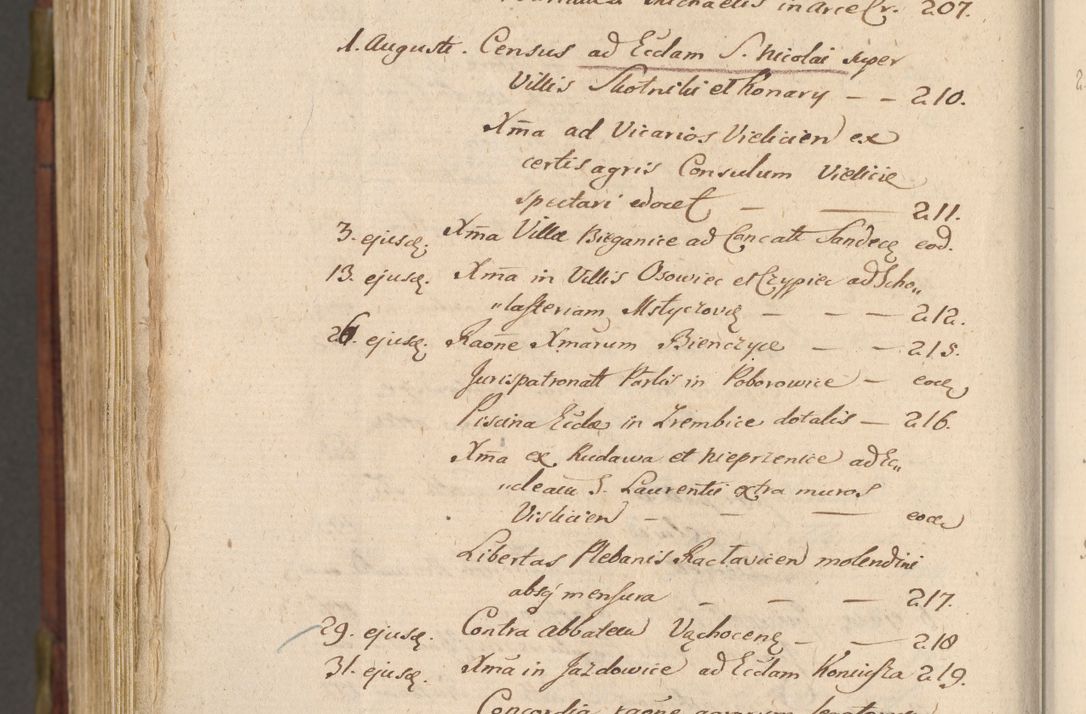 Michaelis in Arce Cr. 207.
1. Augusti. Census ad Ecclam S. Nicolai super
Villis Skotniki et Konary — — 210.
Xma ad Vicarios Vislicien ex
certis agris Consulum Vislicie
spectari docet — — 211.
3. ejusd. Xma Villæ Bieganice ad Cancatt Sandec eod.
13. ejusd. Xma in Villis Osowiec et Czypiec ad Scho„
„lasteriam Mstyczovi — — — 212.
26. ejusd. Raone Xmarum Bienczyce — — 215.
Jurispatronatt Partis in Poborowice — eod
Piscina Ecclæ in Zrembice dotalis — 216.
Xma ex Rudawa et Nieprzenice ad Ec„
„cleam S. Laurentii extra muros
Vislicien — — — eod
Libertas Plebanis Raclavicen molendini
absq mensura — — — 217.
29. ejusd. Contra Abbatem Vąchocen — — 218
31. ejusd. Xma in Jazdowice ad Ecclam Koniusza 219.
Concordia raone